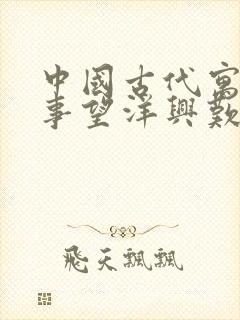 中國古代寓
事望洋興歎
飛天飄飄